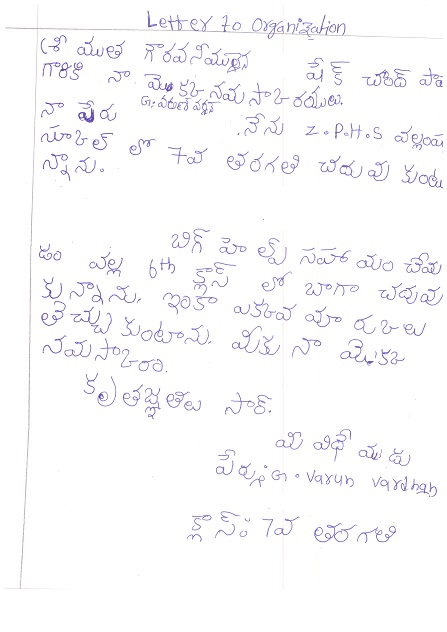 Letter to Organization
శ్రీ యుత గౌరవనీయులైన షేక్ చాంద్ పా
గారికి నా యొక్క నమస్కారములు.
నా పేరు G. వరుణ్ వర్ధన్ .నేను Z.P.H.S వల్లాయ
స్కూల్ లో 7వ తరగతి చదువు కుంటు
న్నాను.
బిగ్ హెల్ప్ సహాయం చేయ
డం వల్ల 6th క్లాస్ లో బాగా చదువు
కున్నాను. ఇంకా ఎక్కువ మారుకలు
తెచ్చుకుంటాను. మీకు నా యొక్క
నమస్కారం.
కృతజ్ఞతలు సార్.
మీ విధేయుడు
పేరు: G. Varun Vardhan
క్లాస్: 7వ తరగతి